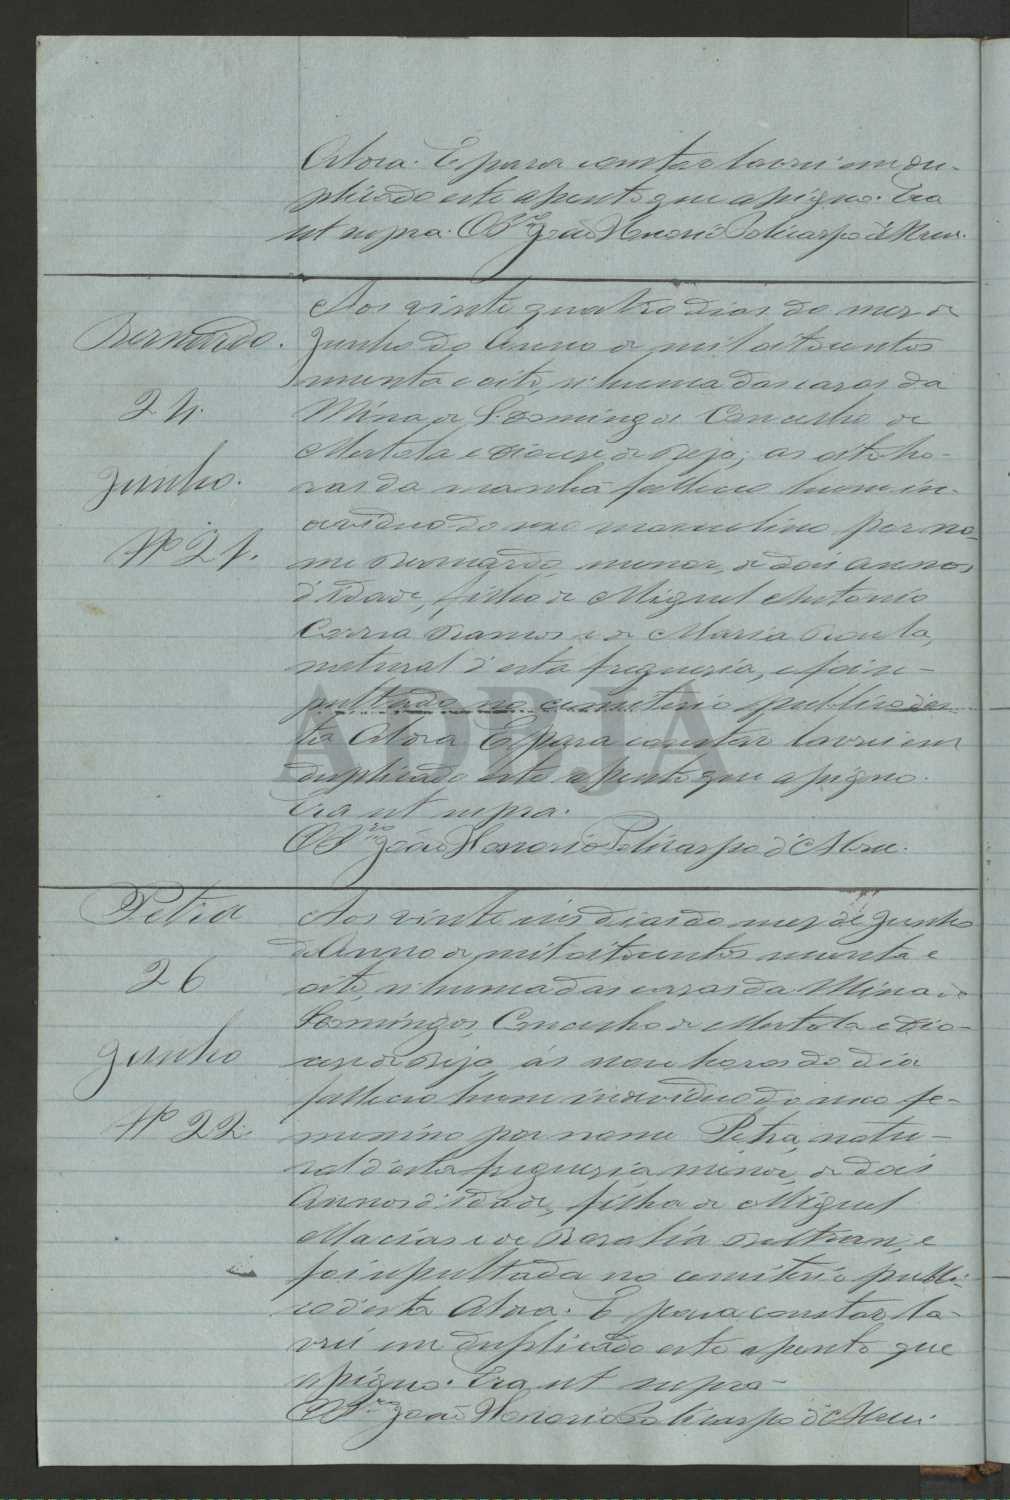 Aldea. E para constar lavrei em du-
plicado este assento que assigno. Era
ut supra. O Pr.º João Honorio Policarpo d'Abreu.
Bernardo.
24
Junho.
Nº 21.
Aos vinte quatro dias do mez de
Junho do Anno de mil oitocentos
noventa e oito, n'huma das casas da
Mina de S. Domingos Concelho de
Mertola e Diocese de Beja, as oito ho-
ras da manhã falleceo hum in-
dividuo do sexo masculino por no-
me Bernardo, menor, de dois annos
d'idade, filho de Miguel Antonio
Correa Ramos e de Maria
natural d'esta freguesia, e foi se-
pultado no cemiterio publico des-
ta Aldea. E para constar lavrei em
duplicado este assento que assigno.
Era ut supra.
O Pr.º João Honorio Policarpo d'Abreu.
Petra
26
Junho
Nº 22.
Aos vinte seis dias do mez de Junho
do Anno de mil oitocentos noventa e
oito, n'huma das casas da Mina de
S. Domingos, Concelho de Mertola e Dio-
cese de Beja, ás nove horas do dia
falleceo hum individuo do sexo fe-
menino por nome Petra, natu-
ral d'esta freguesia, menor, de dois
Annos d'idade, filha de Miguel
Macias e de Rosalia Beltran, e
foi sepultada no cemiterio publi-
co d'esta Aldea. E para constar la-
vrei em duplicado este assento que
assigno. Era ut supra.
O Pr.º João Honorio Policarpo d'Abreu.
ADBJA